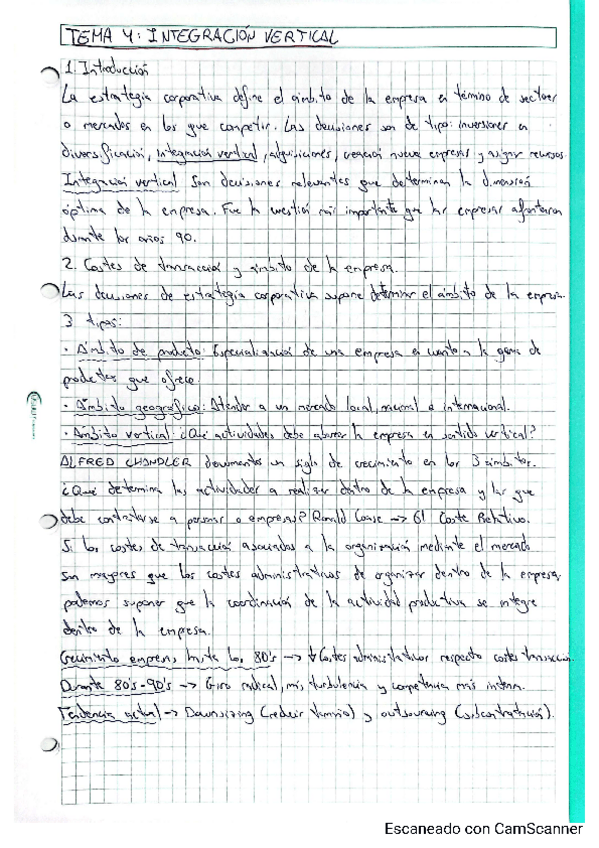 TEMA 4: INTEGRACIÓN VERTICAL
1. Introducción
La estrategia corporativa define el ámbito de la empresa en término de sectores
o mercados en los que competir. Las decisiones son de tipo: inversiones en
diversificación, integración vertical, adquisiciones, creación nueva empresas y asignar recursos.
Integración vertical son decisiones relevantes que determinan la dimensión
óptima de la empresa. Fue la cuestión más importante que las empresas afrontaron
durante los años 90.
2. Costes de transacción y ámbito de la empresa.
Las decisiones de estrategia corporativa supone determinar el ámbito de la empresa.
3 tipos:
· Ámbito de producto: Especialización de una empresa en cuanto a la gama de
productos que ofrece.
· Ámbito geográfico: Atender a un mercado local, nacional o internacional.
· Ámbito vertical: ¿Qué actividades debe abarcar la empresa en sentido vertical?
ALFRED CHANDLER documentó un siglo de crecimiento en los 3 ámbitos.
¿Qué determina las actividades a realizar dentro de la empresa y las que
debe contratarse a personas o empresas? Ronald Coase -> El Coste Relativo.
Si los costes de transacción asociados a la organización mediante el mercado
son mayores que los costes administrativos de organizar dentro de la empresa,
podemos suponer que la coordinación de la actividad productiva se integre
dentro de la empresa.
Crecimiento empresas hasta los 80's -> ↓ Costes administrativos respecto costes transacción.
Durante 80's-90's -> Giro radical, más turbulencia y competencia más intensa.
Tendencia actual -> Downsizing (reducir tamaño) y outsourcing (subcontratación).
Escaneado con CamScanner